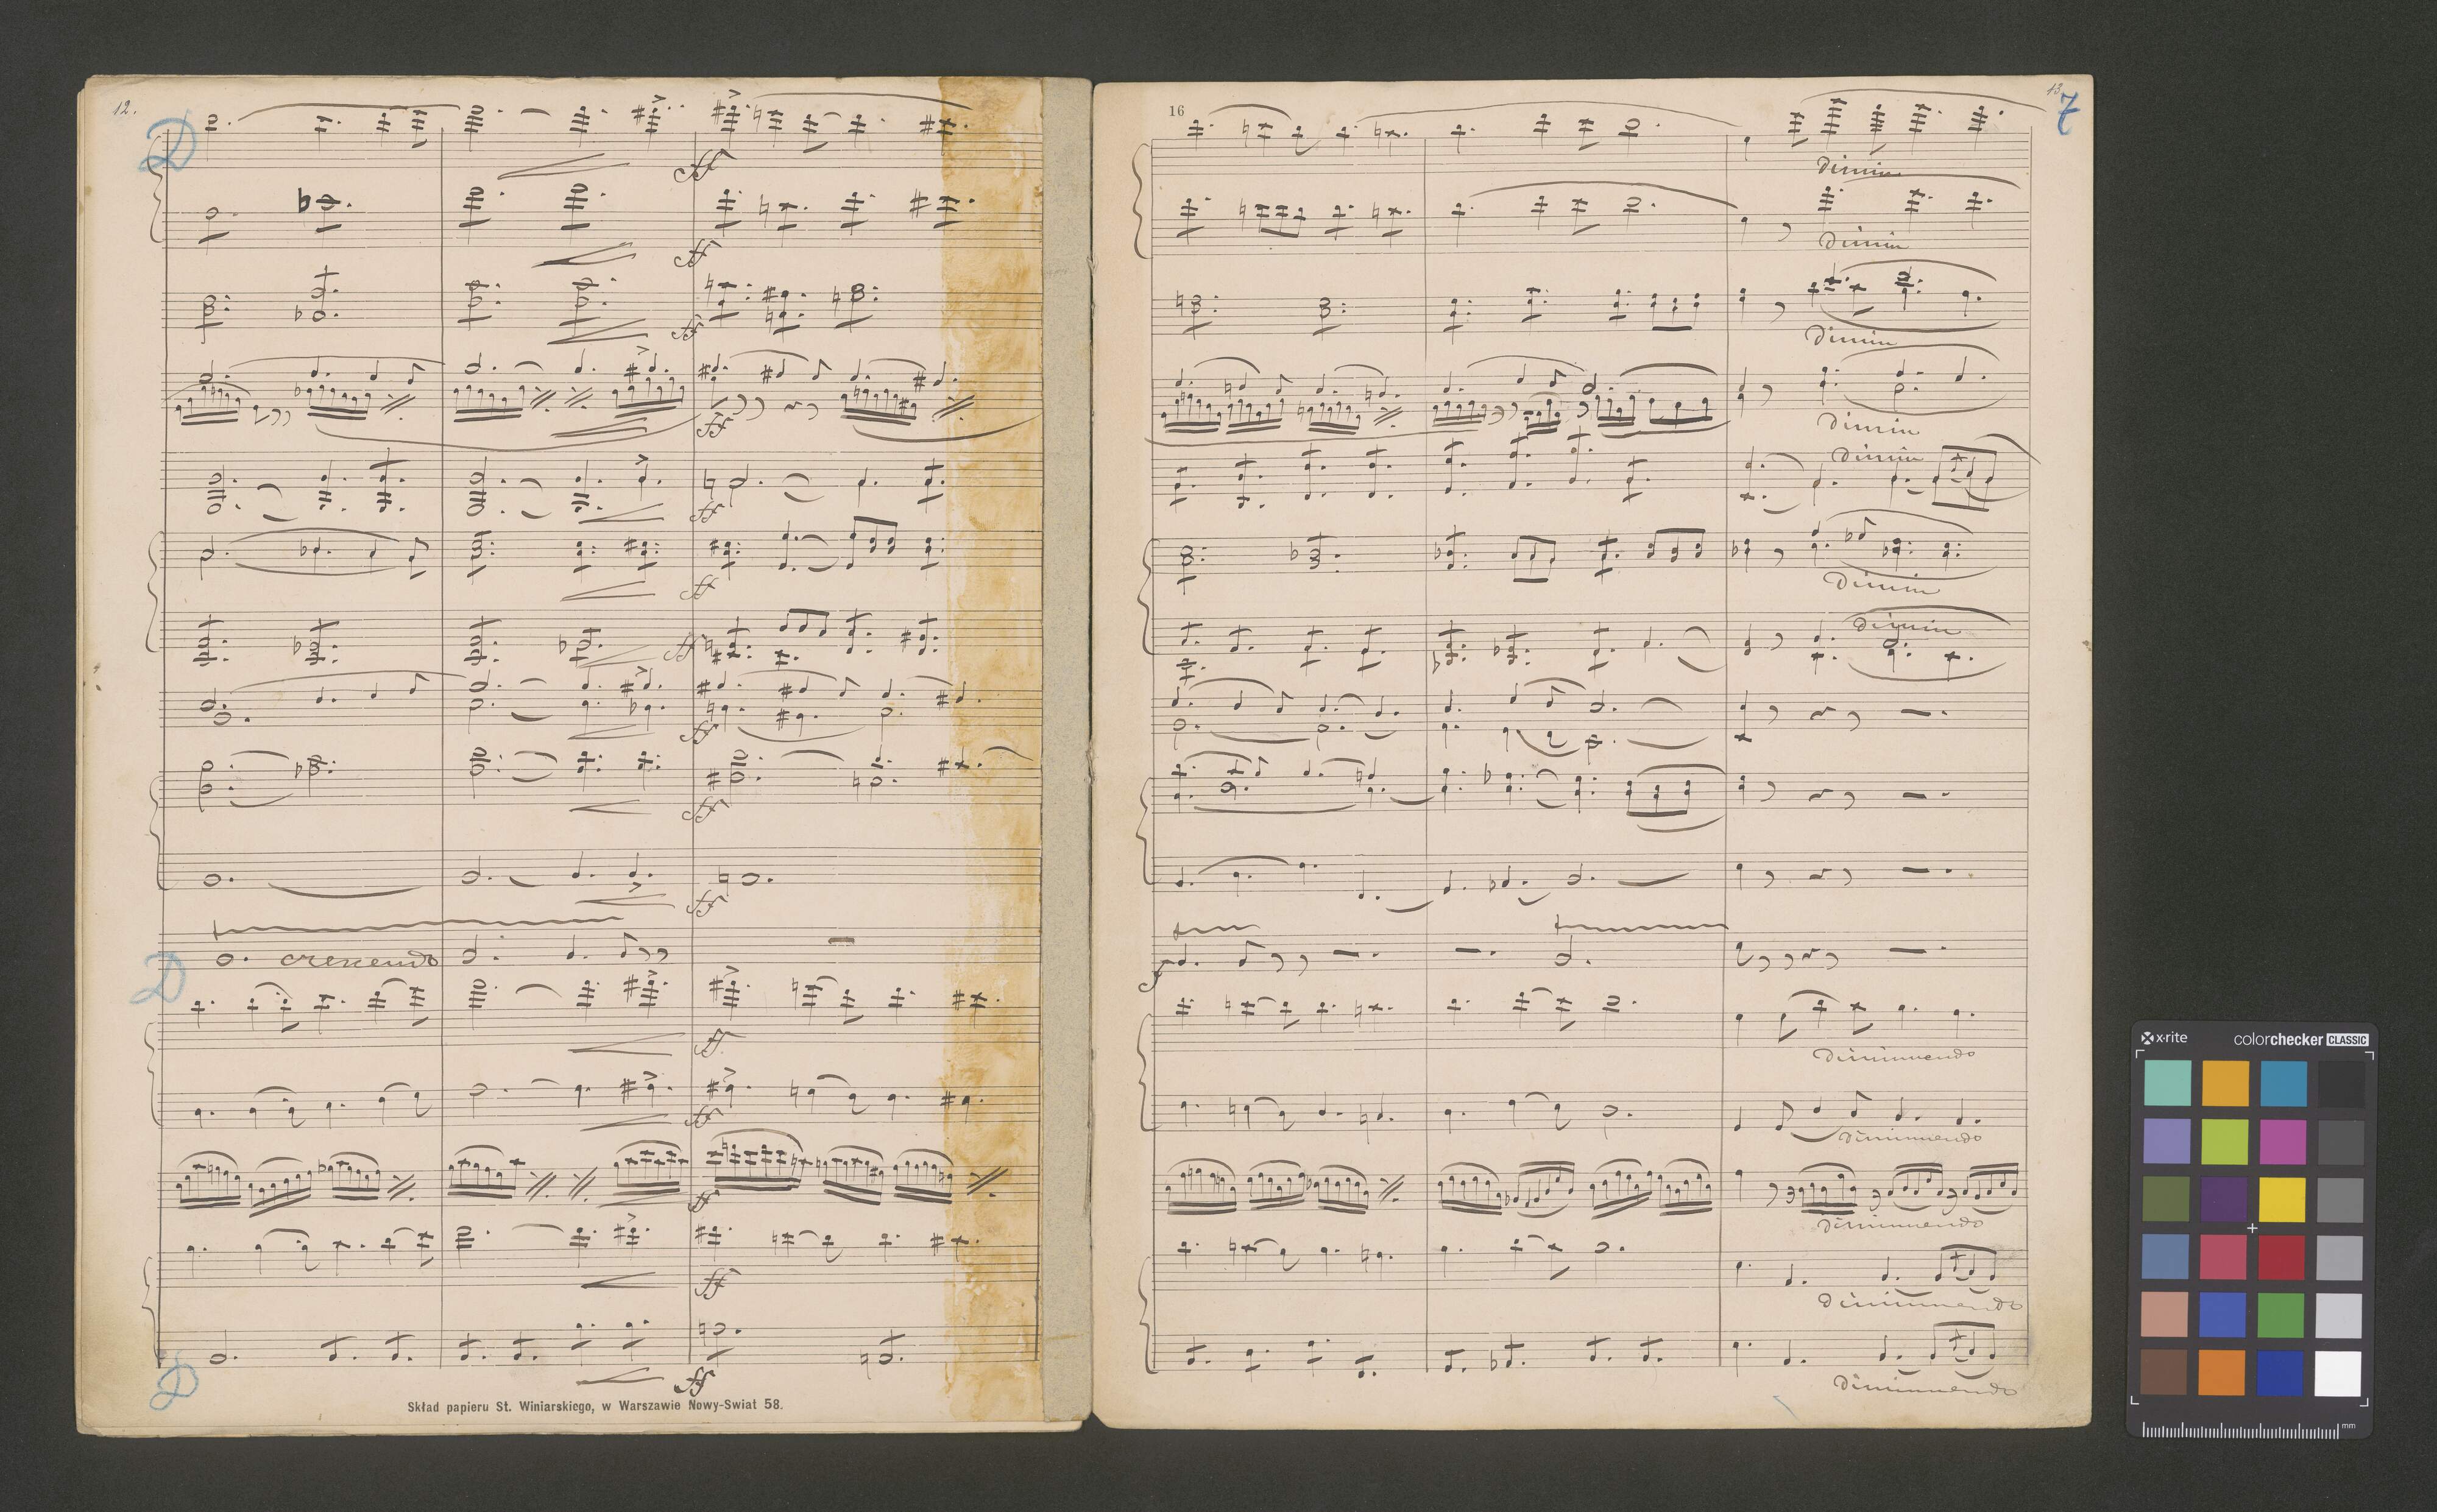 12.
D
ff
ff
ff
ff
ff
ff
ff
ff
ff
ff
crescendo
D
ff
ff
ff
ff
D
ff
Skład papieru St. Winiarskiego, w Warszawie Nowy-Swiat 58.
16
13
7
Dimin
Dimin
Dimin
Dimin
Dimin
Dimin
Dimin
f
Diminuendo
Diminuendo
Diminuendo
Diminuendo
Diminuendo
x-rite
colorchecker CLASSIC
mm